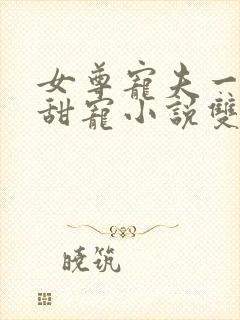 女尊寵夫一
甜寵小說雙
曉筑